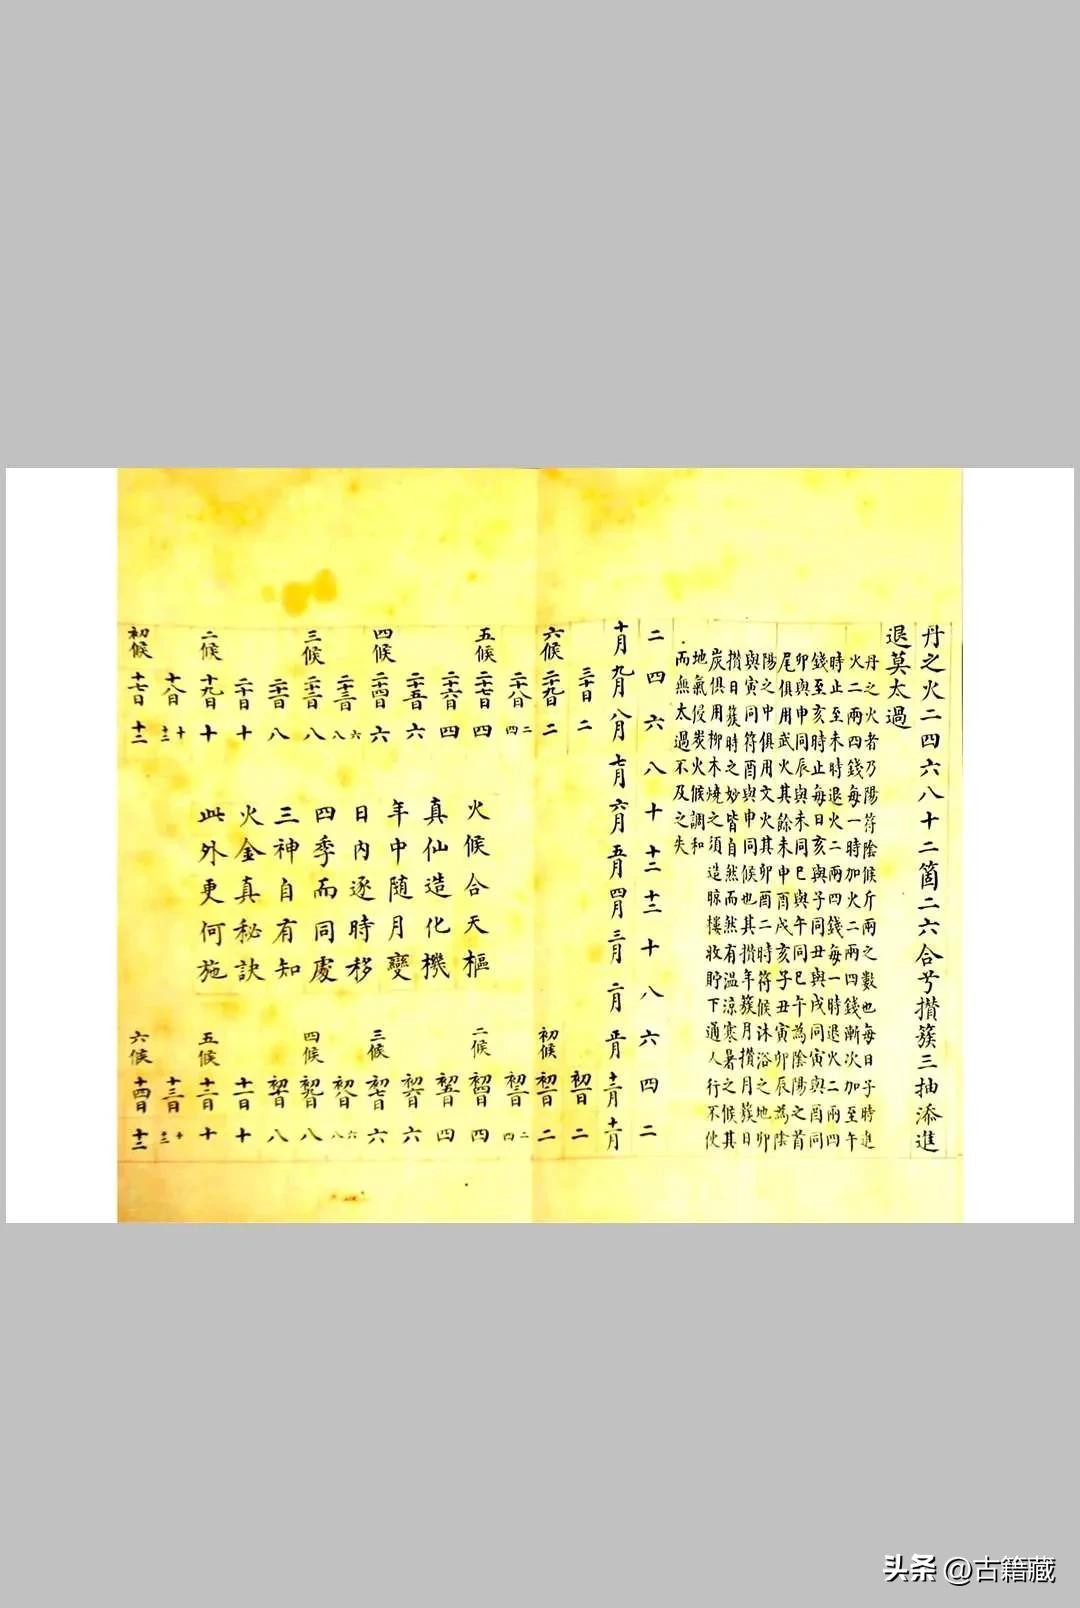 丹之火二四六八十二箇二六合兮攢簇三抽添進
退莫太過
丹之火者乃陽符陰候斤兩之數也每日子時進
火二兩四錢每一時加火二兩四錢漸次加至午
時止至未時退火二兩四錢每一時退火二兩四
錢至亥時止每日亥與子同丑與戌同寅與酉同
卯與申同辰與未同巳與午同巳午為陰陽之首
尾俱用武火其餘未申酉戌亥子丑寅卯辰為陰
陽之中俱用文火其卯酉二時符候沐浴之地卯
與寅同符酉與申同候也其攢年簇月攢月簇日
攢日簇時之妙皆自然而然有溫涼寒暑之候其
炭俱用柳木燒之須造晾樓收貯下通人行不使
地氣侵炭火候調和
而無太過不及之失
二四六八十十二十二十八六四二
十月九月八月七月六月五月四月三月二月正月十二月十一月
三十日 二
六候 二十九日 二
二十八日 二四
五候 二十七日 四
二十六日 四
二十五日 六
四候 二十四日 六
二十三日 六八
三候 二十二日 八
二十一日 八
二十日 十
二候 十九日 十
十八日 十十二
初候 十七日 十二
火候合天樞
真仙造化機
年中随月變
日內逐時移
四季而同處
三神自有知
火金真秘訣
此外更何施
初一日 二
初候 初二日 二
初三日 二四
二候 初四日 四
初五日 四
初六日 六
三候 初七日 六
初八日 六八
四候 初九日 八
初十日 八
十一日 十
五候 十二日 十
十三日 十十二
六候 十四日 十二
头条 @古籍藏